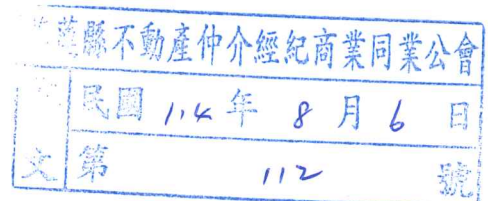 蓮縣不動產仲介經紀商業同業公會
民國 114 年 8 月 6 日
文 第 112 號